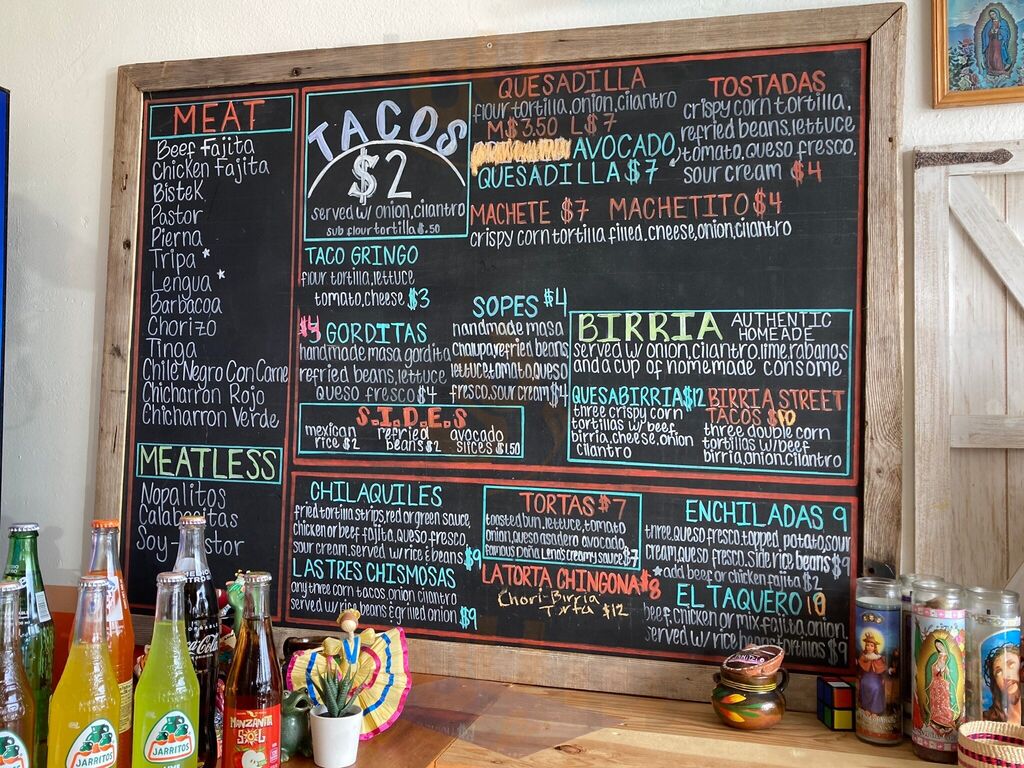 MEAT
Beef Fajita
Chicken Fajita
Bistek
Pastor
Pierna
Tripa *
Lengua *
Barbacoa
Chorizo
Tinga
Chile Negro Con Carne
Chicharron Rojo
Chicharron Verde
MEATLESS
Nopalitos
Calabacitas
Soy-Pastor
TACOS
$2
served w/ onion, cilantro
sub flour tortilla $.50
TACO GRINGO
flour tortilla, lettuce
tomato, cheese $3
$4 GORDITAS
handmade masa gordita
refried beans, lettuce
queso fresco $4
SOPES $4
handmade masa
chalupa, refried beans
lettuce, tomato, queso
fresco, sour cream $4
S.I.D.E.S
mexican rice $2
refried beans $2
avocado slices $1.50
QUESADILLA
flour tortilla, onion, cilantro
M $3.50 L $7
AVOCADO
QUESADILLA $7
MACHETE $7 MACHETITO $4
crispy corn tortilla filled, cheese, onion, cilantro
TOSTADAS
crispy corn tortilla,
refried beans, lettuce
tomato, queso fresco,
sour cream $4
BIRRIA AUTHENTIC HOMEADE
served w/ onion, cilantro, lime, rabanos
and a cup of homemade consome
QUESABIRRIA $12
three crispy corn
tortillas w/ beef
birria, cheese, onion
cilantro
BIRRIA STREET
TACOS $10
three double corn
tortillas w/ beef
birria, onion, cilantro
CHILAQUILES
fried tortilla strips, red or green sauce,
chicken or beef fajita, queso fresco,
sour cream, served w/ rice & beans $9
LAS TRES CHISMOSAS
any three corn tacos onion, cilantro
served w/ rice, beans & grilled onion $9
TORTAS $7
toasted bun, lettuce, tomato
onion, queso asadero avocado,
famous Doña Lena's creamy sauce $7
LA TORTA CHINGONA $8
Chori-Birria
Torta $12
ENCHILADAS 9
three, queso fresco, topped, potato, sour
cream, queso fresco, side rice beans $9
* add beef or chicken fajita $2
EL TAQUERO 10
beef, chicken or mix fajita, onion,
served w/ rice beans tortillas $9
JARRITOS
JARRITOS
MANZANITA
SOL
Coca-Cola